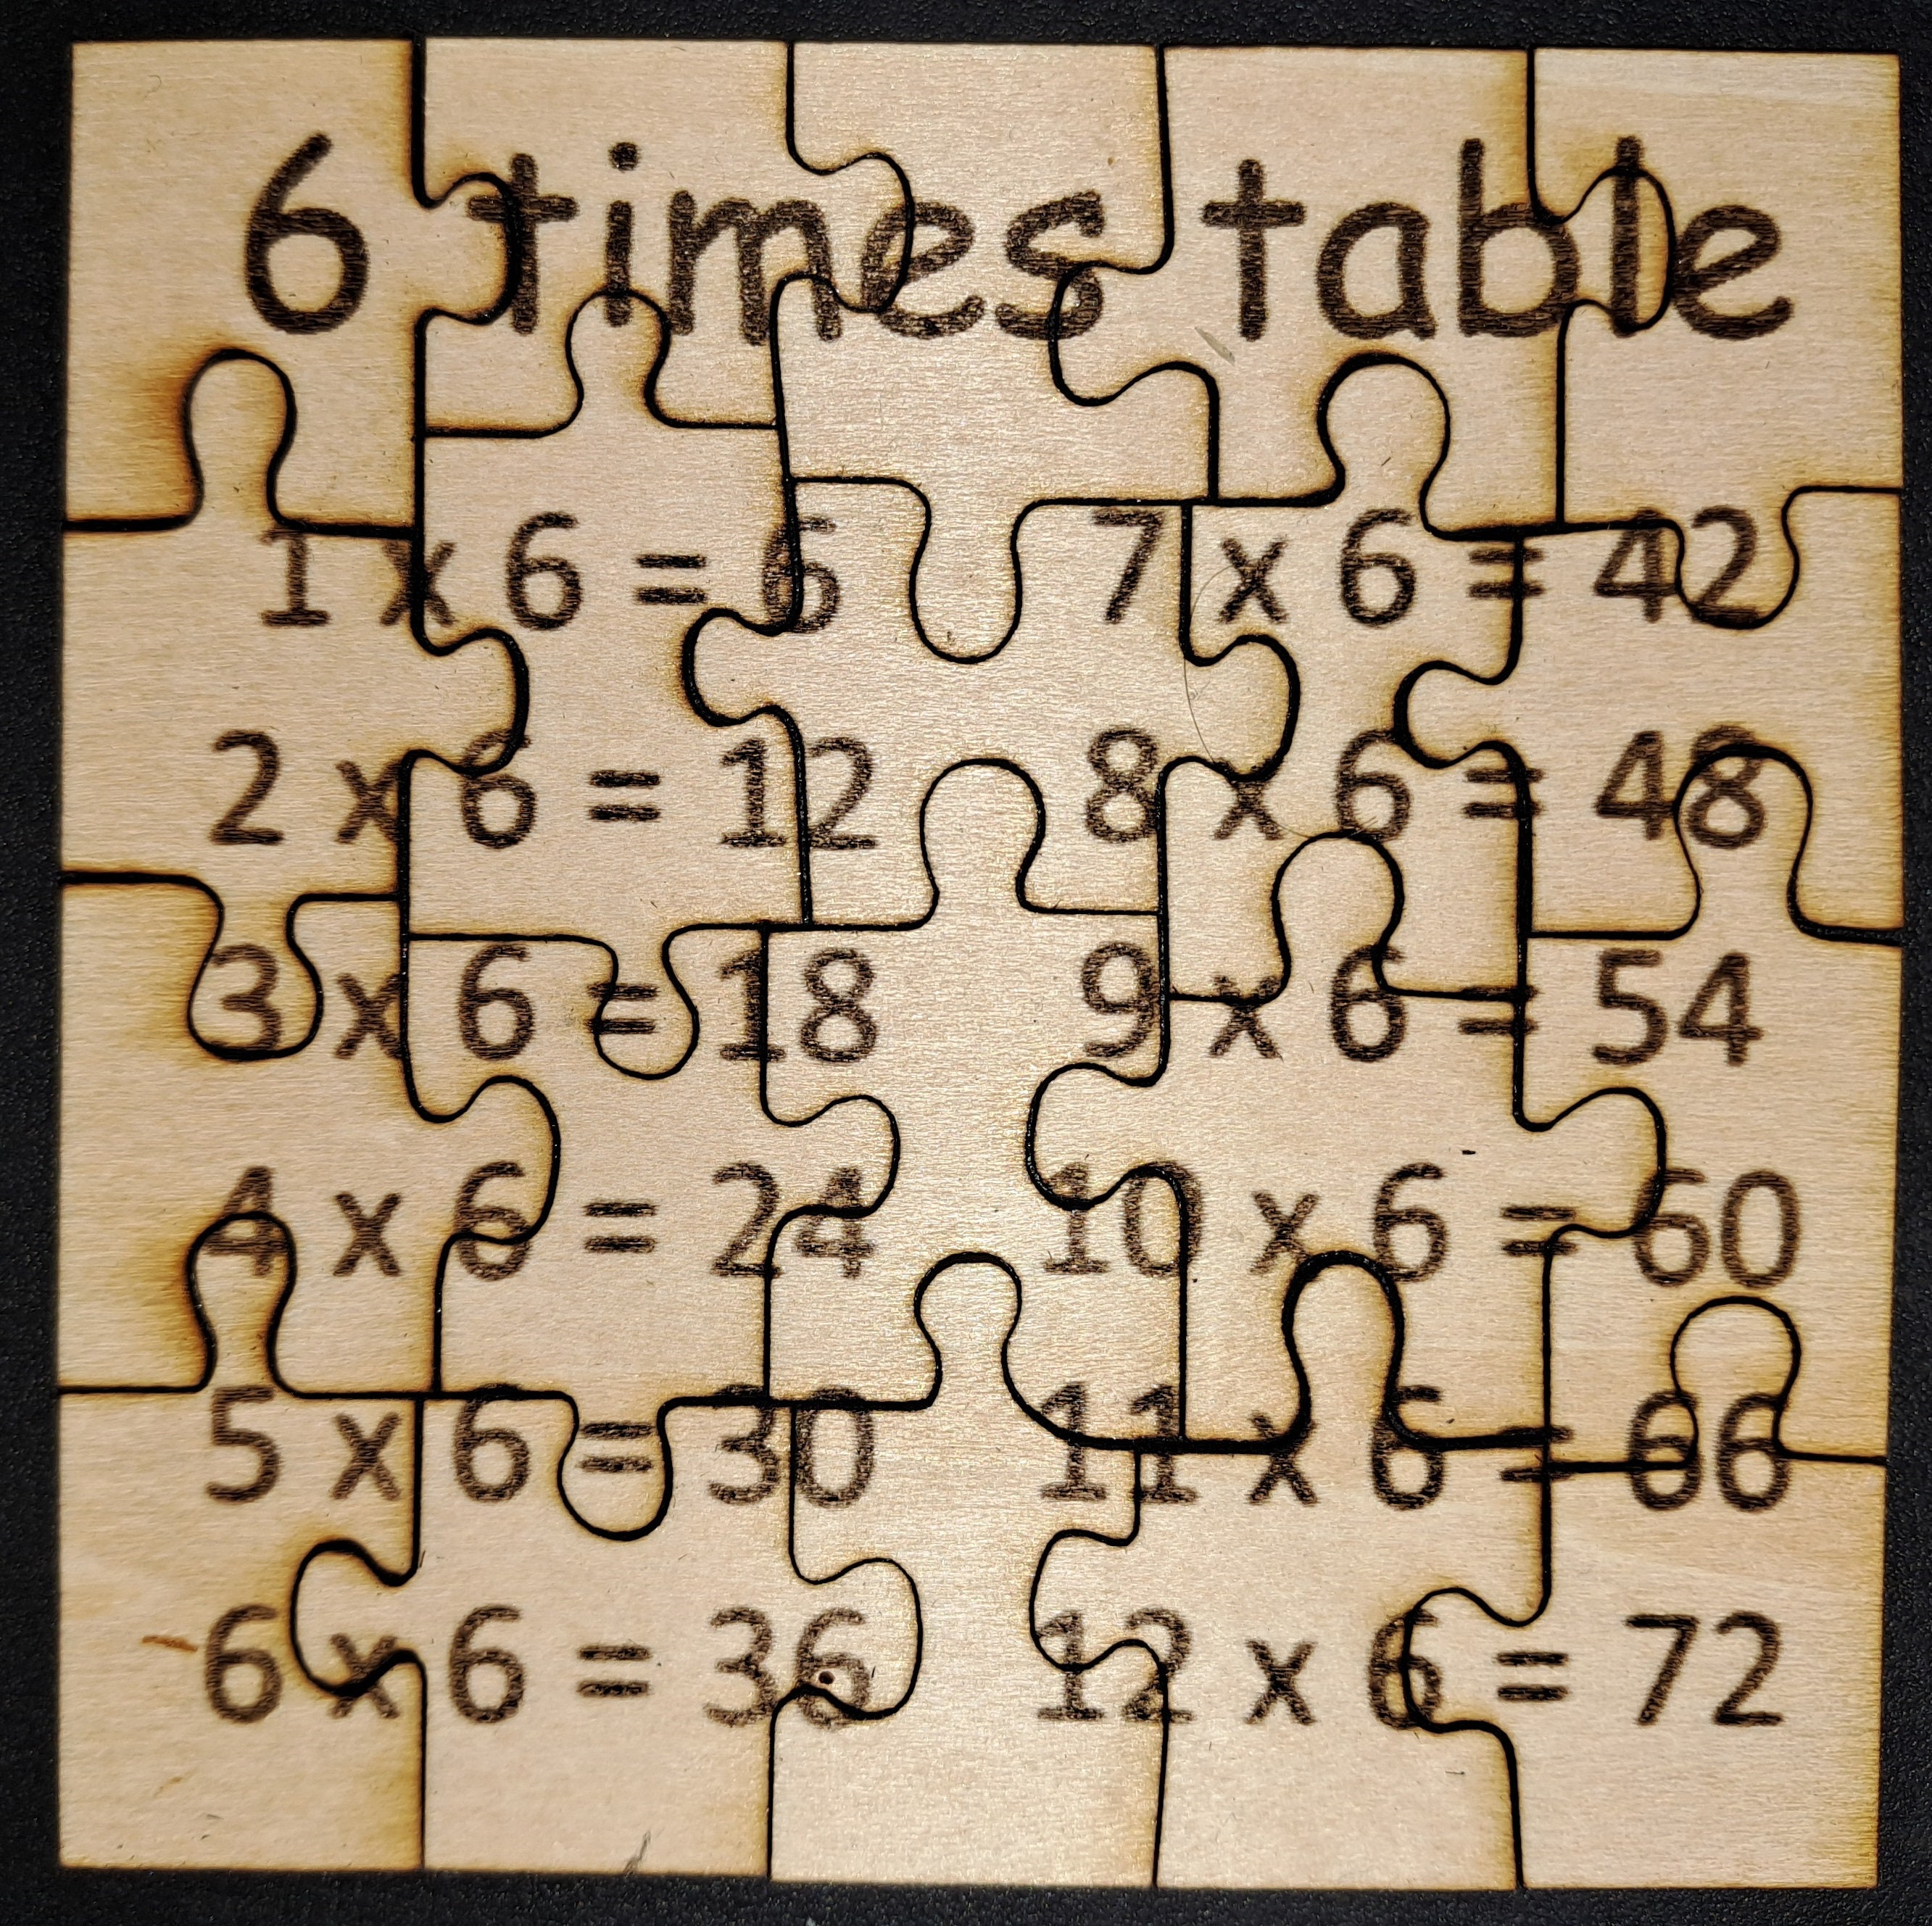 6 times table
1 x 6 = 6
2 x 6 = 12
3 x 6 = 18
4 x 6 = 24
5 x 6 = 30
6 x 6 = 36
7 x 6 = 42
8 x 6 = 48
9 x 6 = 54
10 x 6 = 60
11 x 6 = 66
12 x 6 = 72